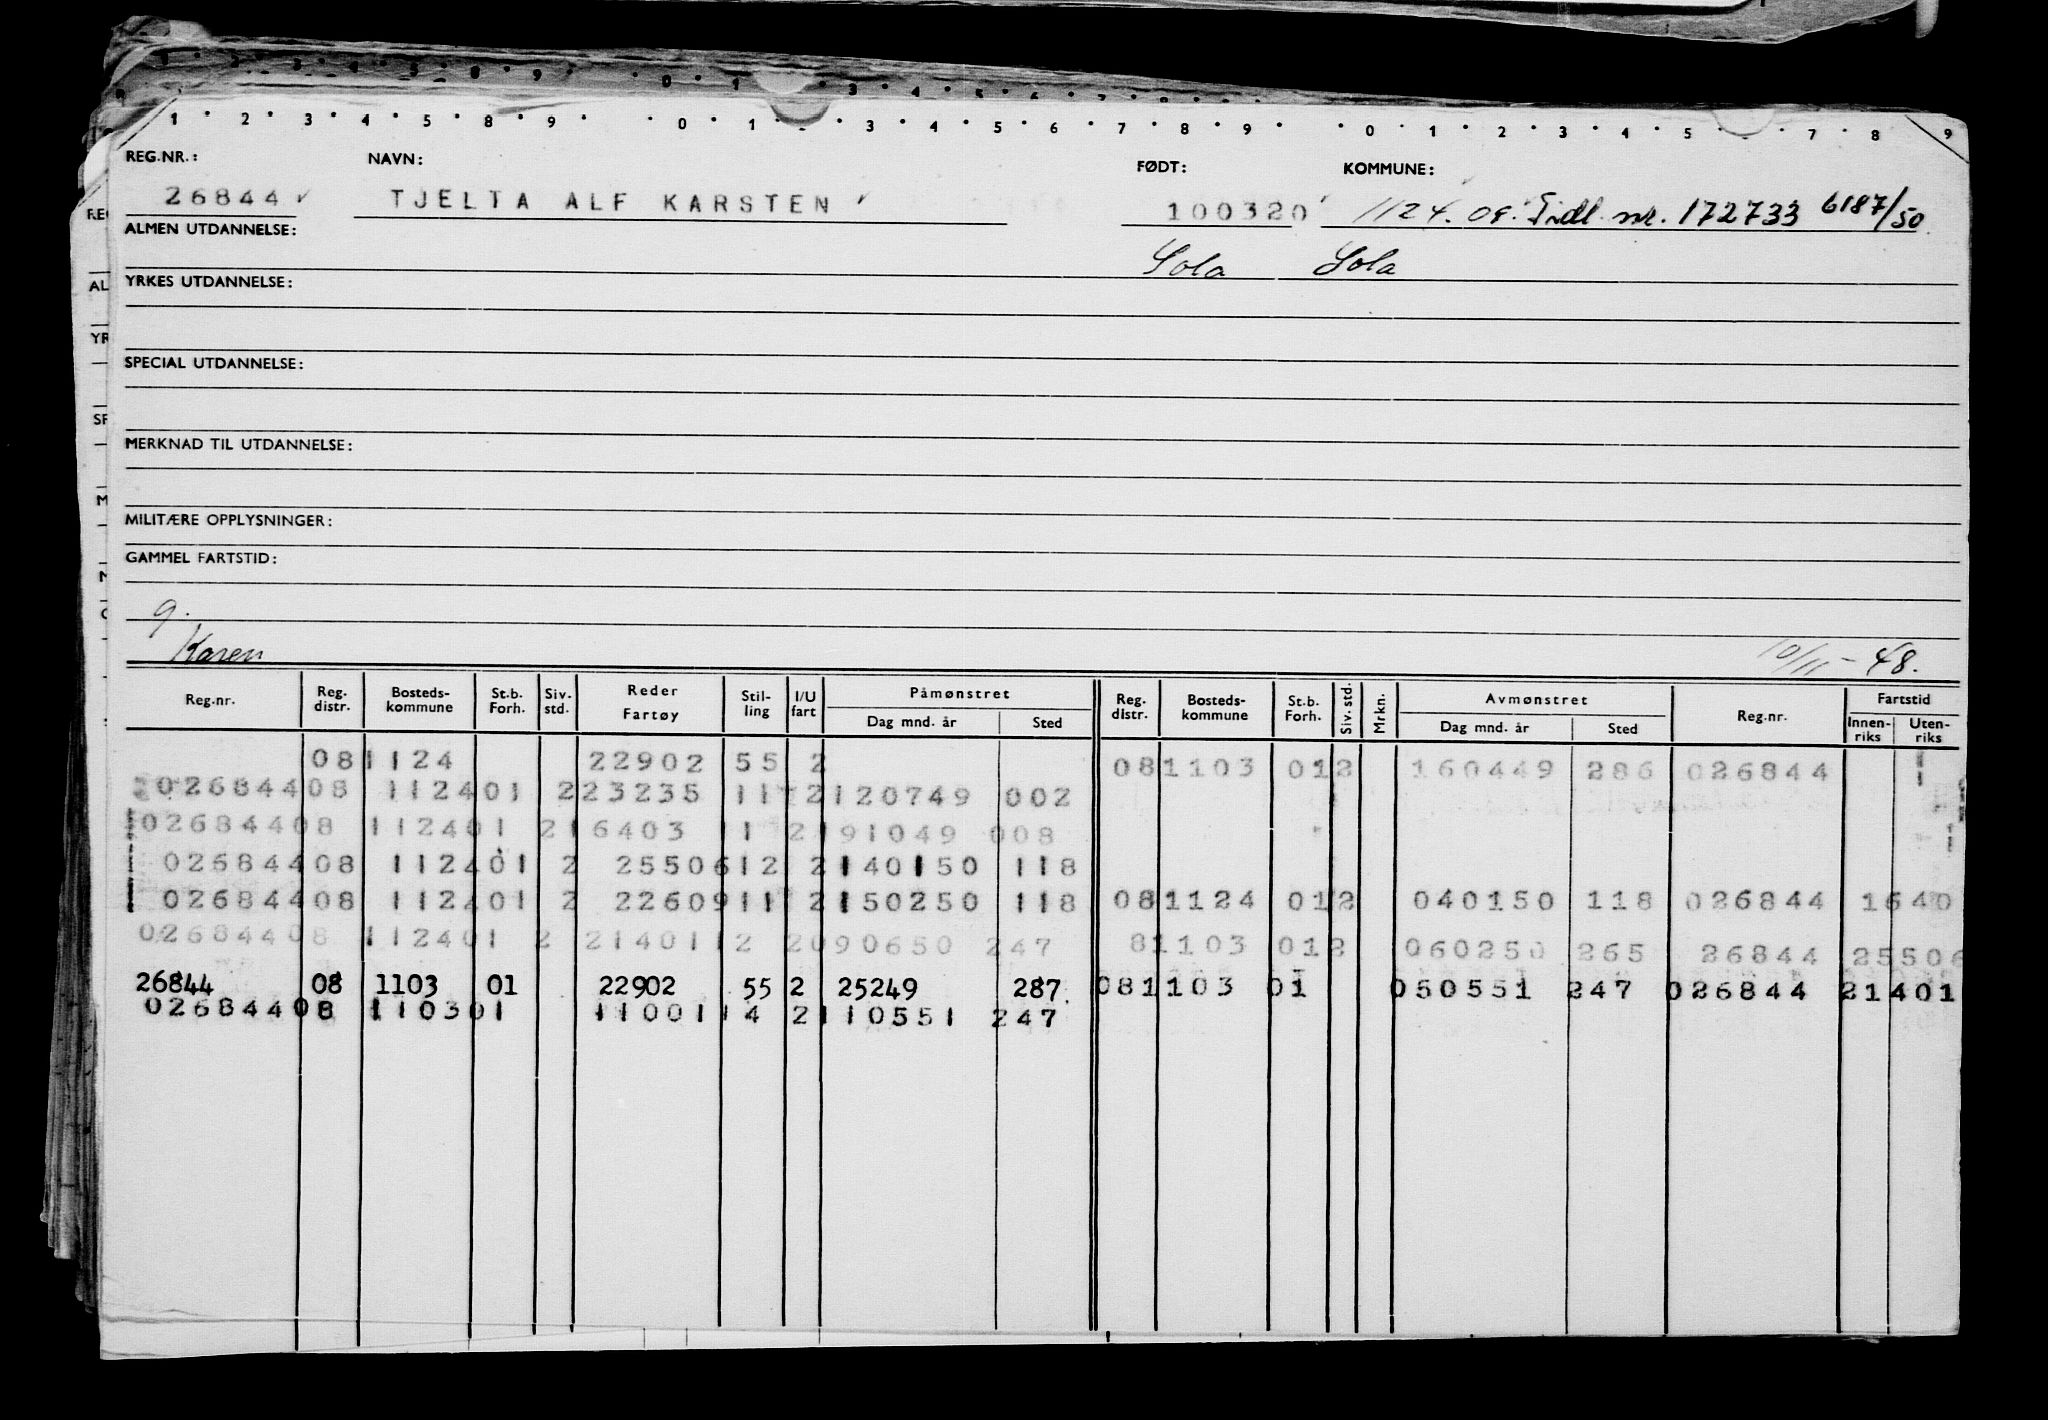 1 2 3 4 5 8 9 0 1 3 4 5 6 7 8 9 0 1 2 3 4 5 7 8 9
REG.NR.: NAVN: FØDT: KOMMUNE:
26844 TJELTA ALF KARSTEN 100320 1124. 08. Tidl. nr. 172733 6187/50
ALMEN UTDANNELSE: Sola Sola
YRKES UTDANNELSE:
SPECIAL UTDANNELSE:
MERKNAD TIL UTDANNELSE:
MILITÆRE OPPLYSNINGER:
GAMMEL FARTSTID:
g.
Karen 10/11-48.
Reg.nr. Reg. distr. Bosteds-kommune St.b. Forh. Siv. std. Reder Fartøy Stil-ling I/U fart Påmønstret Dag mnd. år Sted Reg. distr. Bosteds-kommune St.b. Forh. Siv. std. Mrkn. Avmønstret Dag mnd. år Sted Reg.nr. Fartstid Innen-riks Uten-riks
08 1124 22902 55 2 08 1103 01 2 160449 286 026844
026844 08 1124 01 2 23235 11 2 120749 002
026844 08 1124 01 2 16403 11 2 191049 008
026844 08 1124 01 2 25506 12 2 140150 118
026844 08 1124 01 2 22609 11 2 150250 118 08 1124 01 2 040150 118 026844 1640
026844 08 1124 01 2 21401 12 2 090650 247 8 1103 01 2 060250 265 26844 25506
26844 08 1103 01 22902 55 2 25249 287 08 1103 01 050551 247 026844 21401
026844 08 1103 01 11001 14 2 110551 247